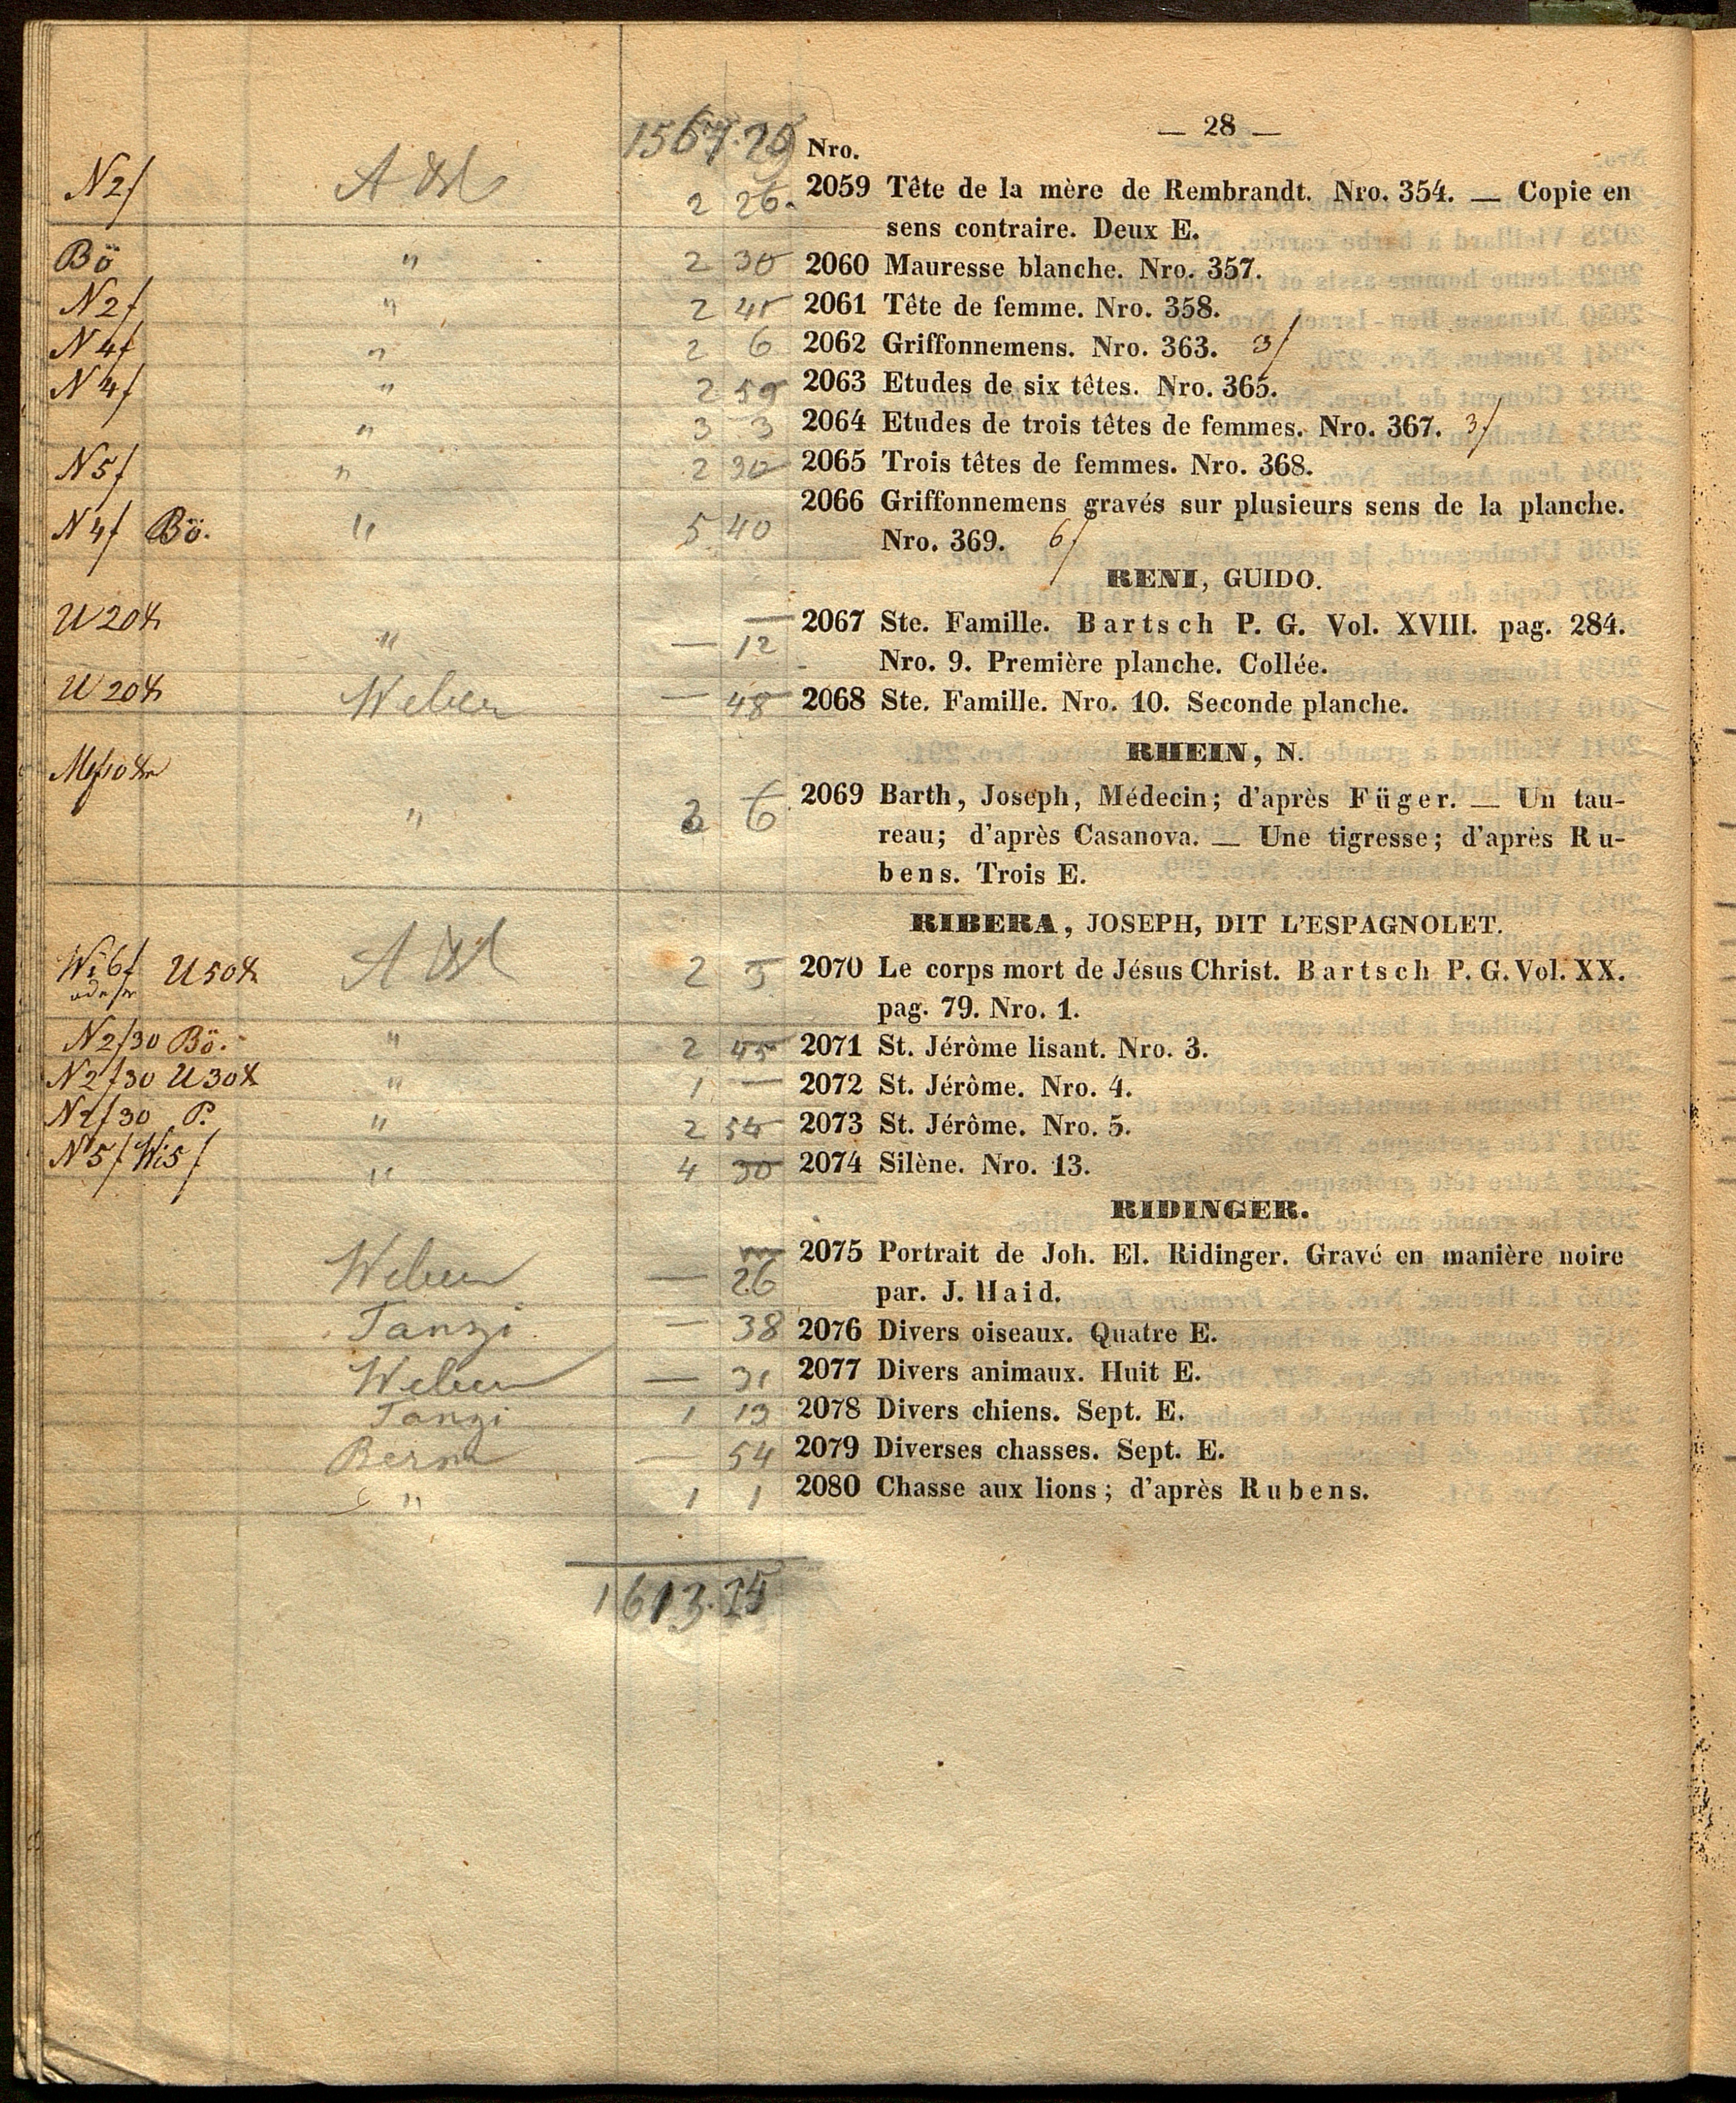 — 28 —
Nro.
N2f 2 26. 2059 Tête de la mère de Rembrandt. Nro. 354. — Copie en
sens contraire. Deux E.
Bö " 2 30 2060 Mauresse blanche. Nro. 357.
N2f " 2 45 2061 Tête de femme. Nro. 358.
N4f " 2 6 2062 Griffonnemens. Nro. 363. 3/
N4f " 2 59 2063 Etudes de six têtes. Nro. 365.
" 3 3 2064 Etudes de trois têtes de femmes. Nro. 367. 3/
N5f " 2 30 2065 Trois têtes de femmes. Nro. 368.
2066 Griffonnemens gravés sur plusieurs sens de la planche.
N4f Bö. " 5 40 Nro. 369. 6/
RENI, GUIDO.
U20x " — 12 2067 Ste. Famille. Bartsch P. G. Vol. XVIII. pag. 284.
Nro. 9. Première planche. Collée.
U20x Weber — 48 2068 Ste. Famille. Nro. 10. Seconde planche.
RHEIN, N.
" 6 2069 Barth, Joseph, Médecin; d'après Füger. — Un tau-
reau; d'après Casanova. — Une tigresse; d'après Ru-
bens. Trois E.
RIBERA, JOSEPH, DIT L'ESPAGNOLET.
Wi6f U50x 2 5 2070 Le corps mort de Jésus Christ. Bartsch P. G. Vol. XX.
pag. 79. Nro. 1.
N2f30 Bö. " 2 45 2071 St. Jérôme lisant. Nro. 3.
N2f30 U30x " 1 — 2072 St. Jérôme. Nro. 4.
N2f30 P. " 2 54 2073 St. Jérôme. Nro. 5.
N5f Wi5f " 4 30 2074 Silène. Nro. 13.
RIDINGER.
Weber — 26 2075 Portrait de Joh. El. Ridinger. Gravé en manière noire
par. J. Haid.
Tanzi — 38 2076 Divers oiseaux. Quatre E.
Weber — 31 2077 Divers animaux. Huit E.
Tanzi 1 13 2078 Divers chiens. Sept. E.
— 54 2079 Diverses chasses. Sept. E.
" 1 1 2080 Chasse aux lions; d'après Rubens.